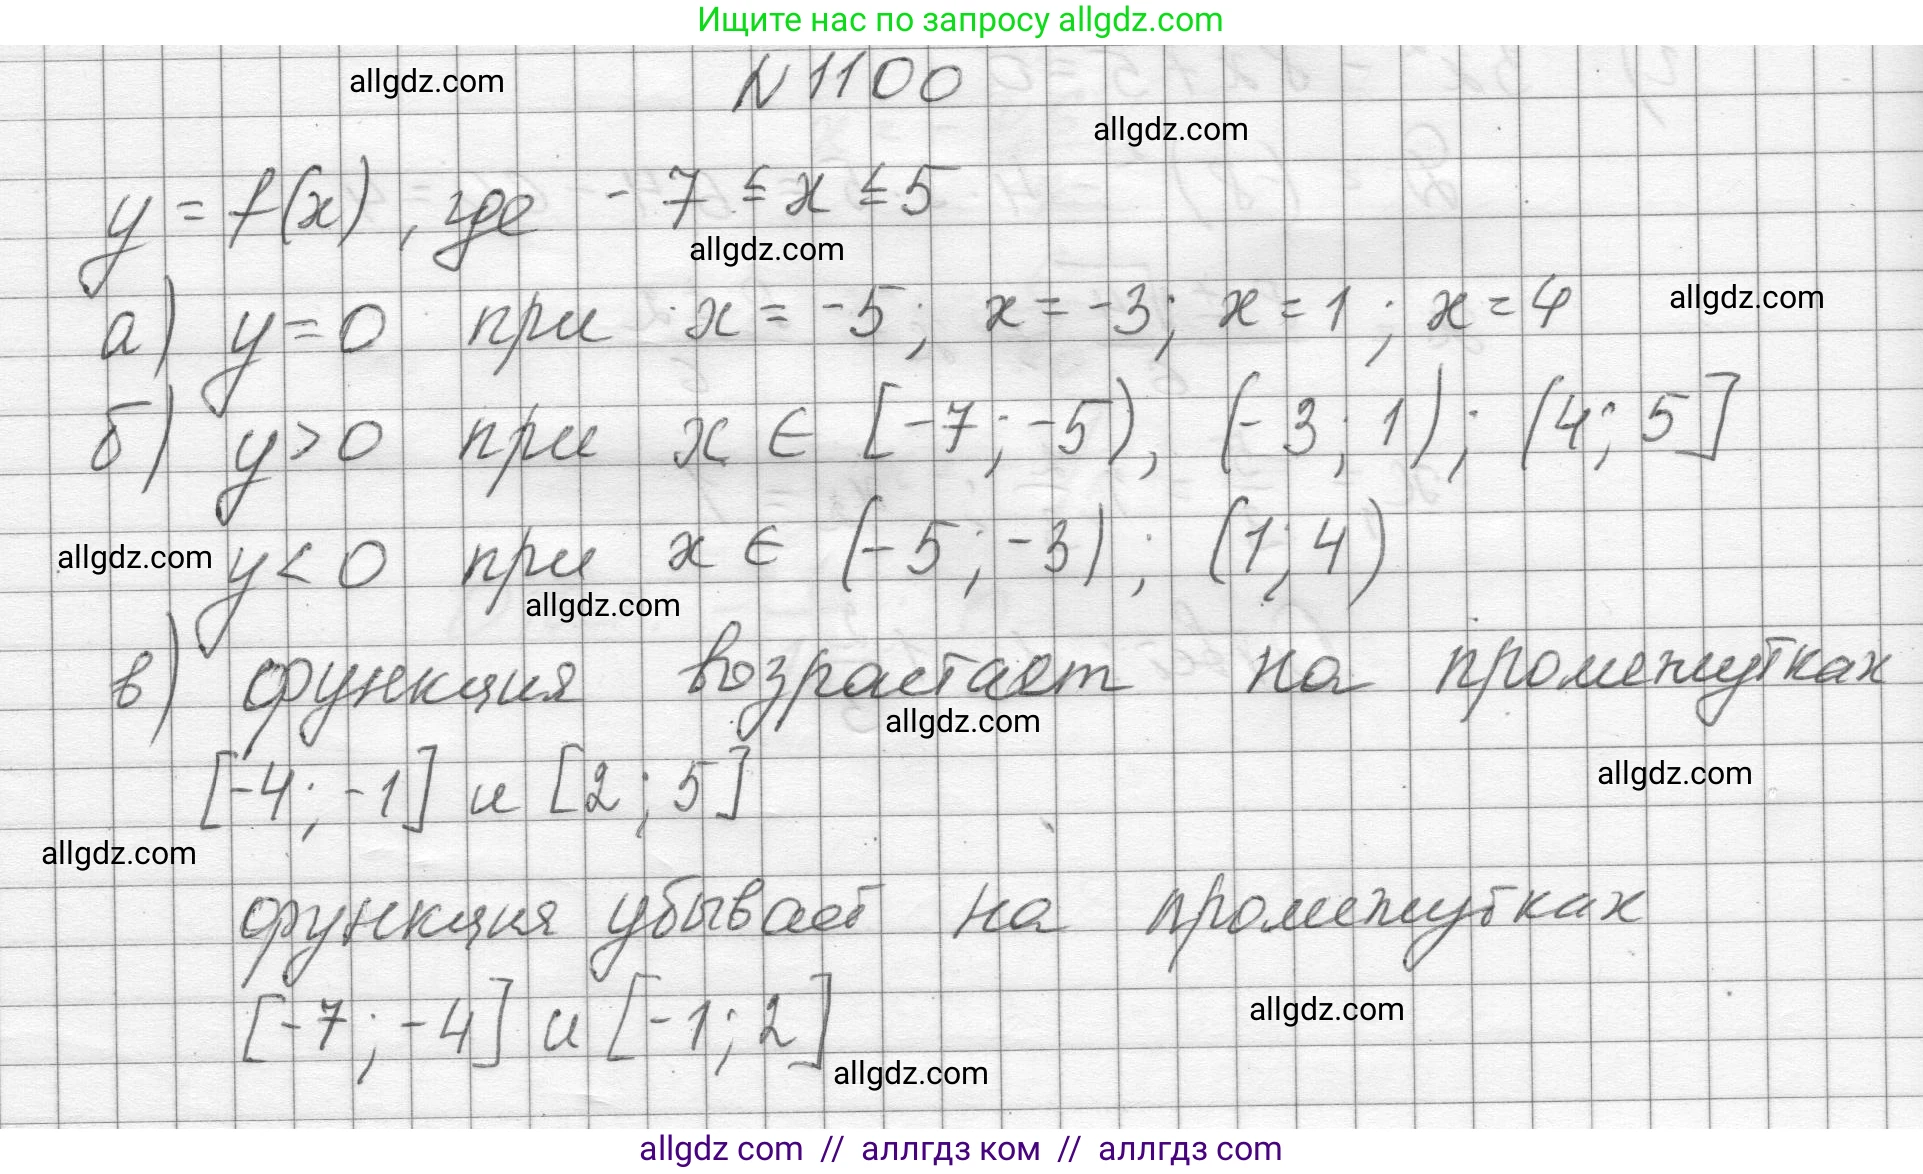 Ищите нас по запросу allgdz.com
N 1100
allgdz.com
allgdz.com
y = f(x), где -7 ≤ x ≤ 5
allgdz.com
а) y = 0 при x = -5; x = -3; x = 1; x = 4
allgdz.com
б) y > 0 при x ∈ [-7; -5), (-3; 1); (4; 5]
y < 0 при x ∈ (-5; -3); (1; 4)
allgdz.com
allgdz.com
в) функция возрастает на промежутках
allgdz.com
[-4; -1] и [2; 5]
allgdz.com
allgdz.com
функция убывает на промежутках
[-7; -4] и [-1; 2]
allgdz.com
allgdz.com
allgdz com // аллгдз ком // аллгдз com